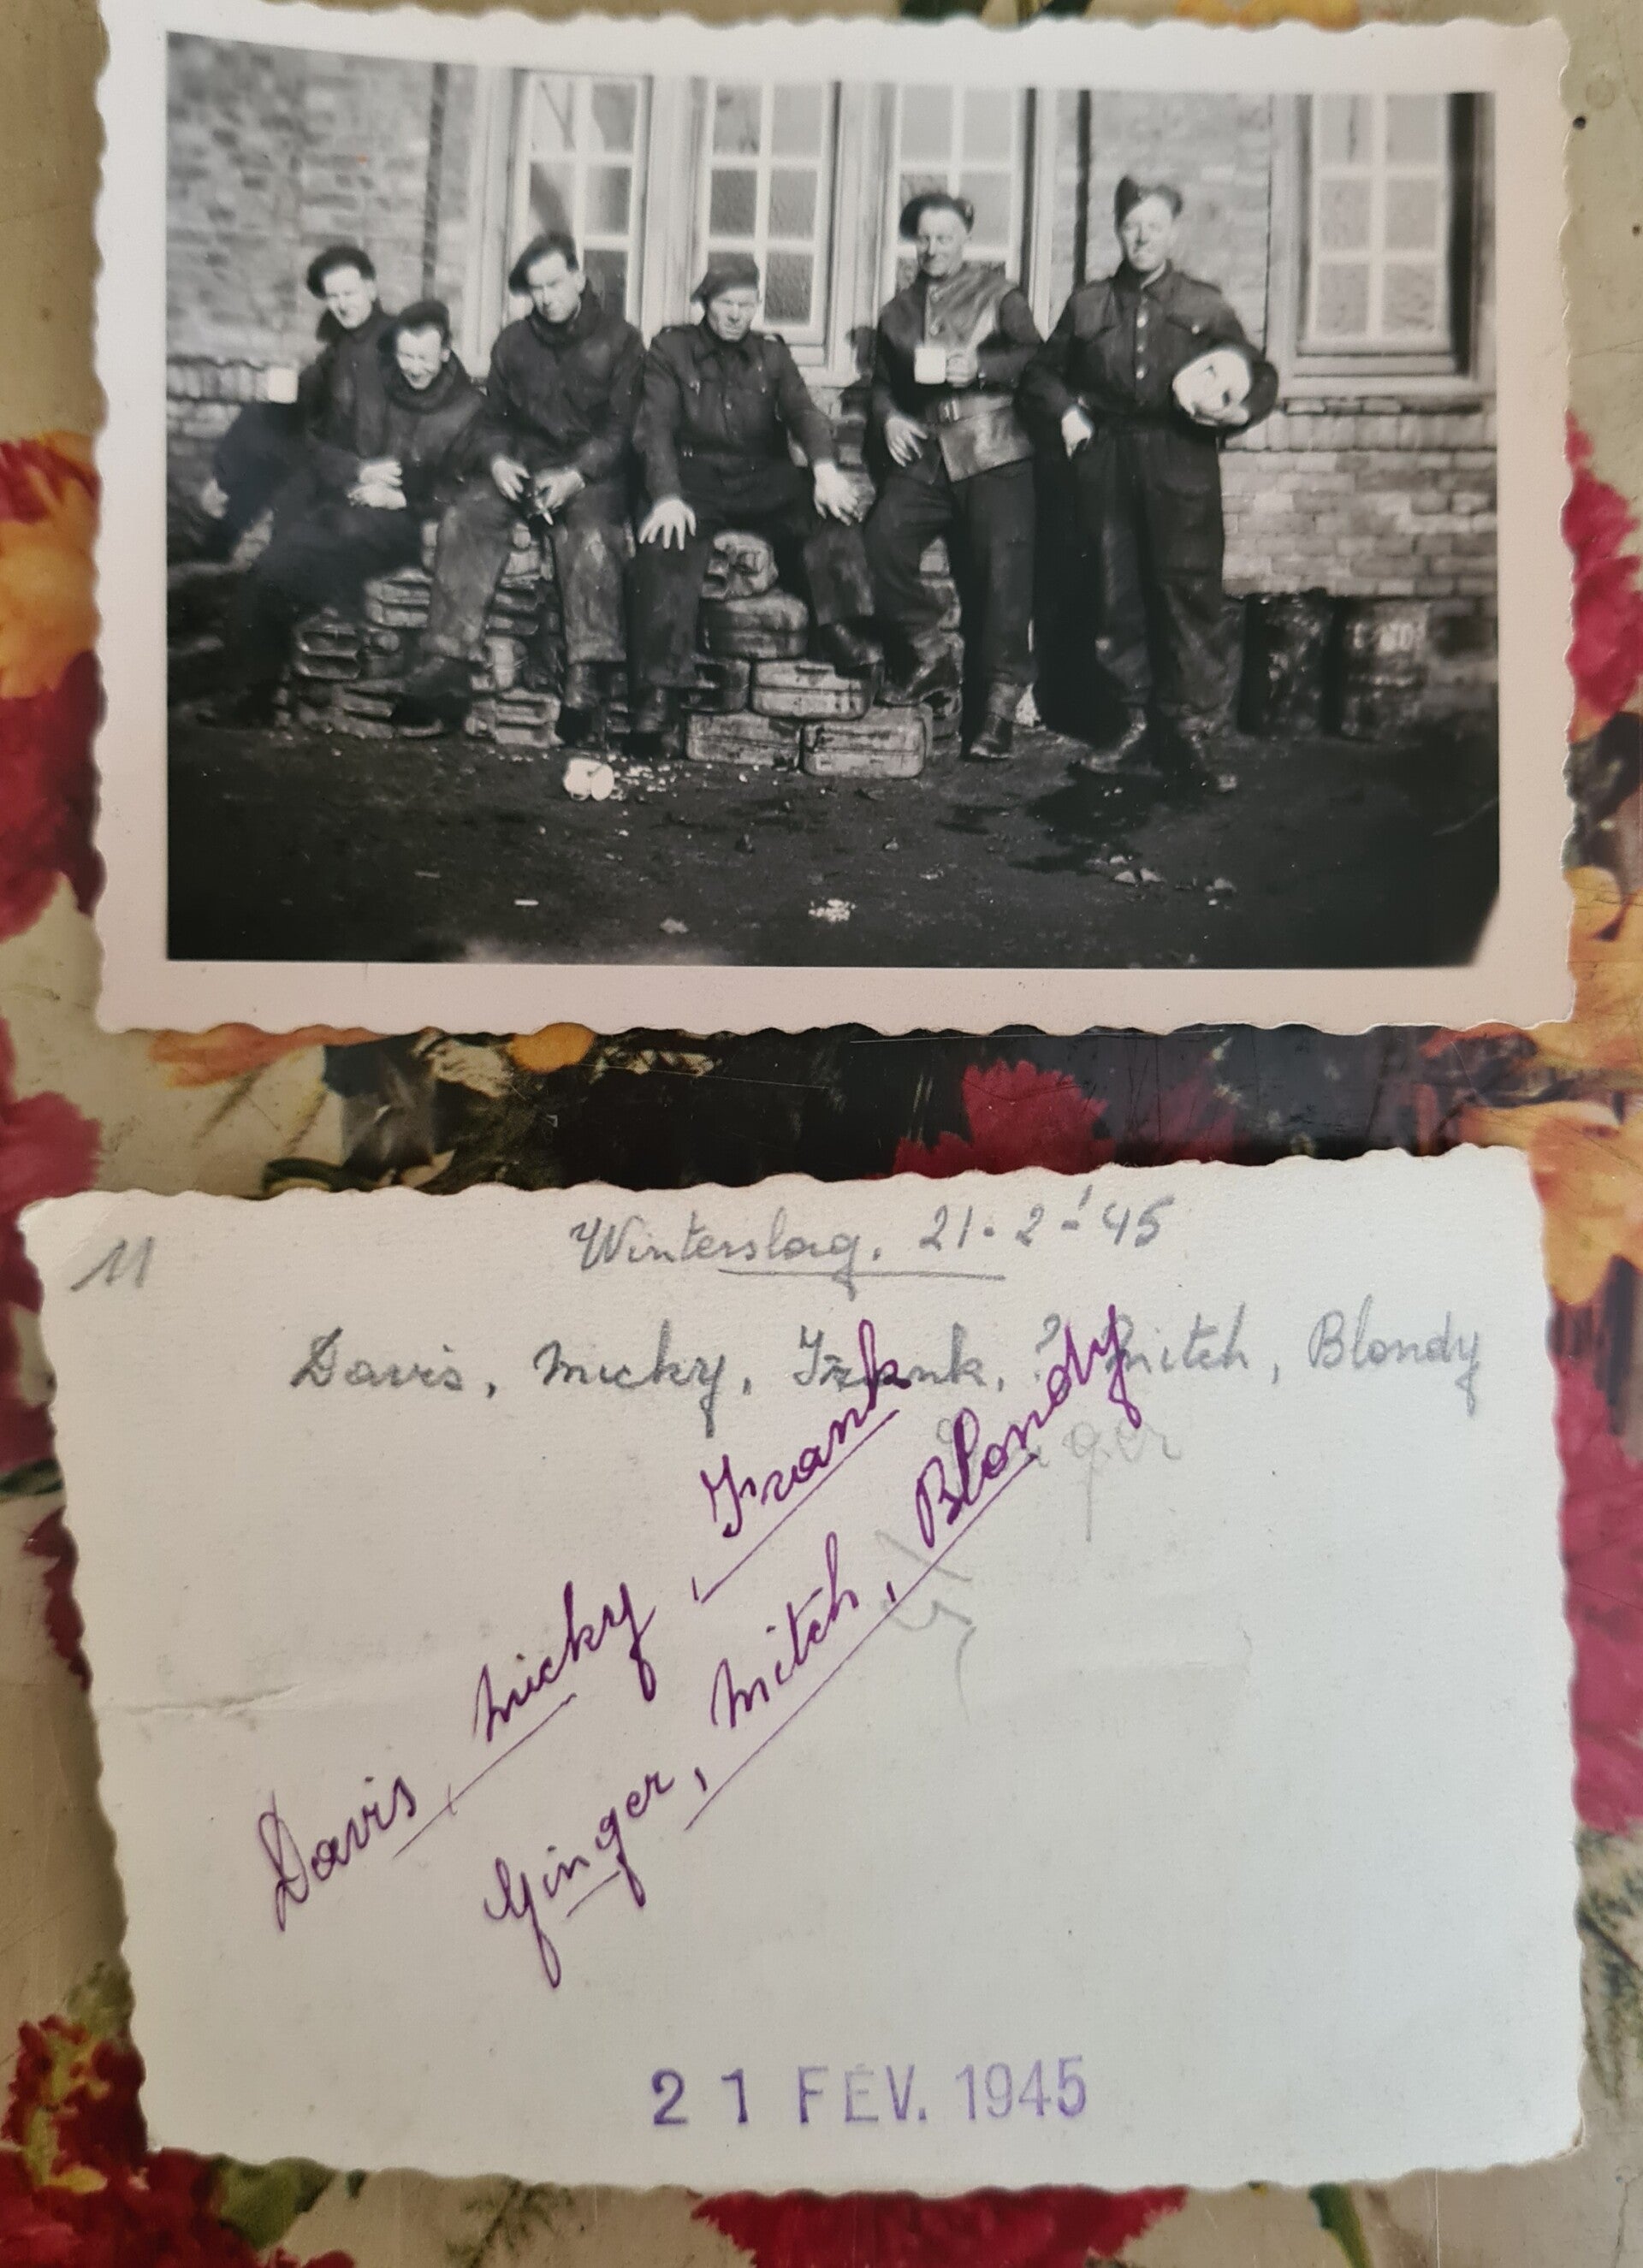 11
Winterslag. 21-2-'45
Davis, Micky, Frank, ? Mitch, Blondy
Ginger
Davis, Micky, Frank
Ginger, Mitch, Blondy
21 FÉV. 1945